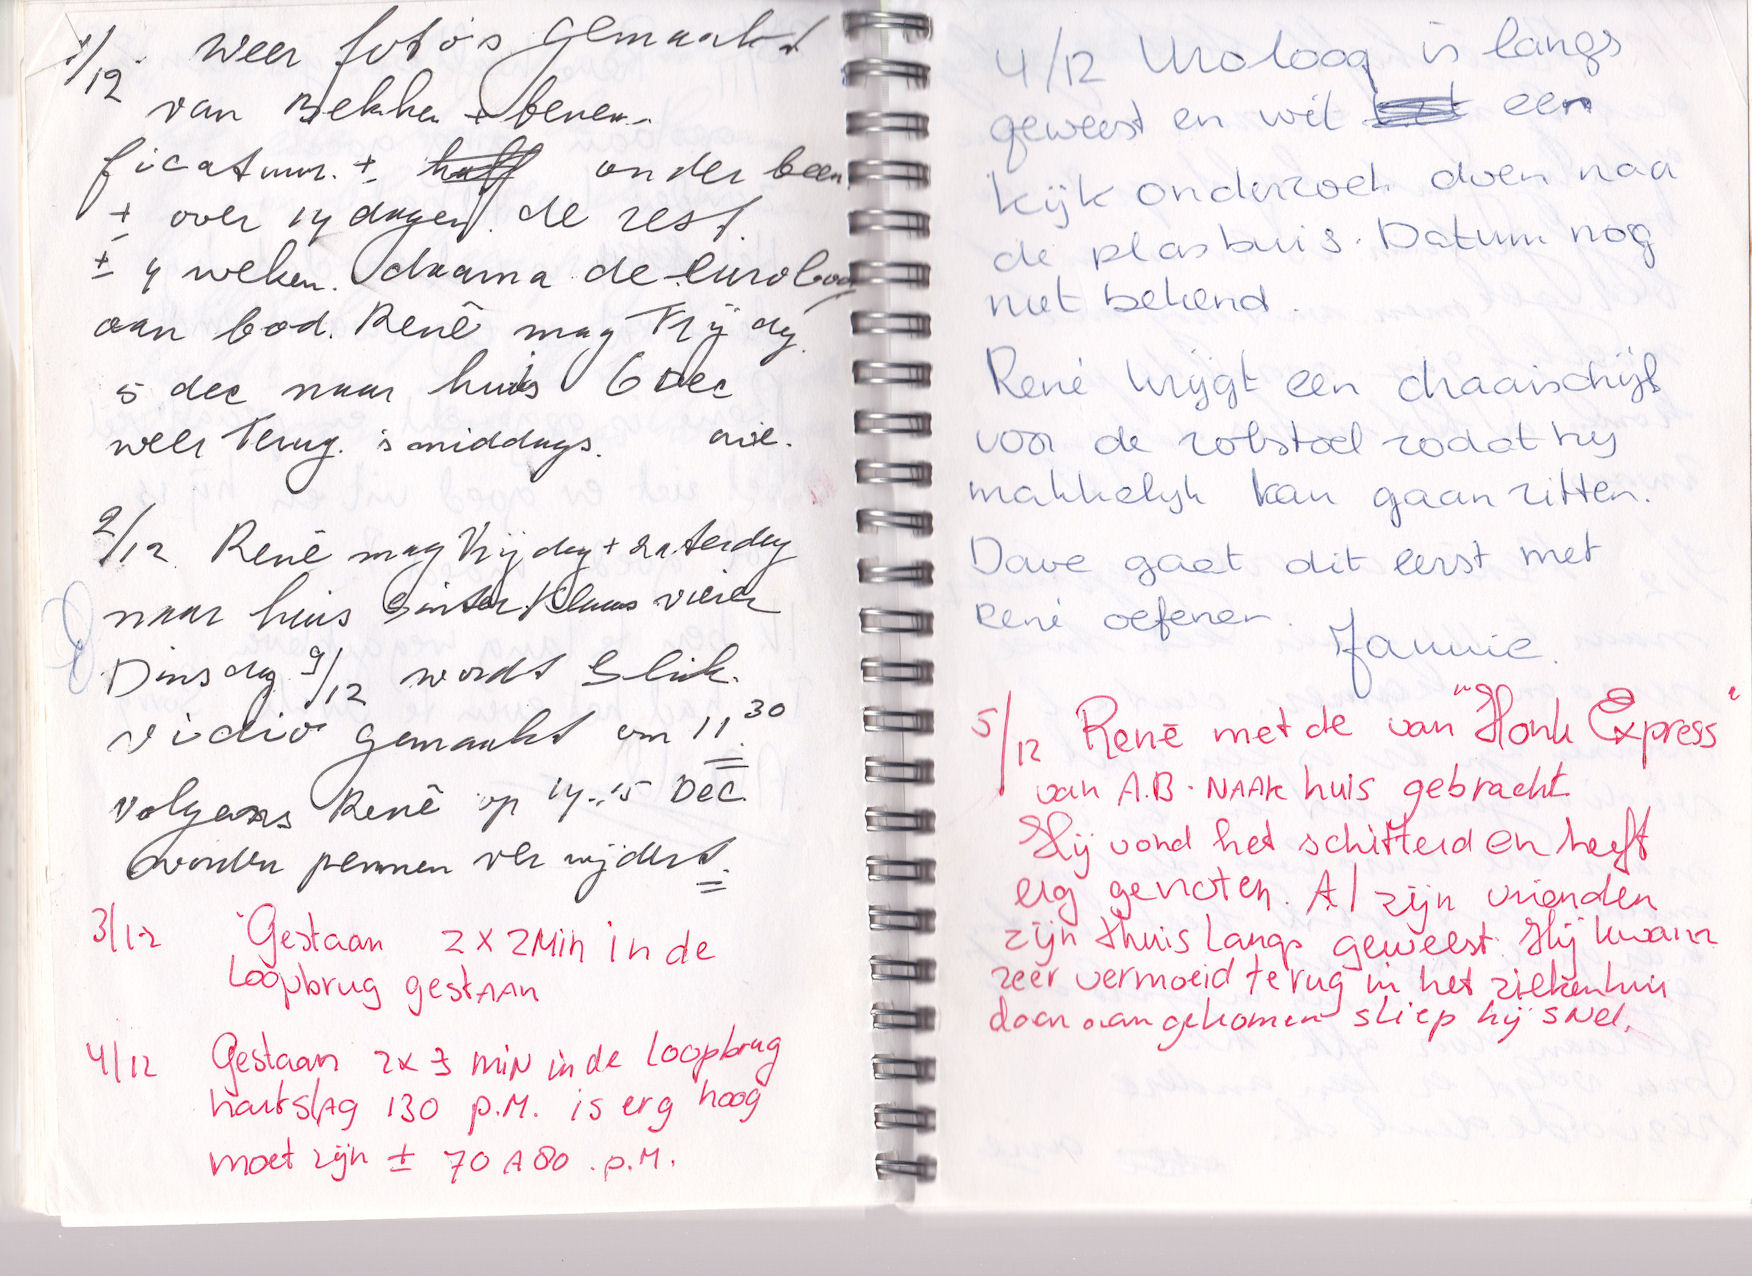 1/12. Weer foto's gemaakt
van Bekken + benen.
ficatuur. ± onder been
± over 14 dagen. de rest.
± 4 weken. daarna de euroloog
aan bod. René mag Vrijdag
5 dec naar huis 6 Dec
weer terug. 's middags.
2/12 René mag Vrijdag + zaterdag
naar huis Sinterklaas vieren
Dinsdag 9/12 wordt Slik.
vidio gemaakt om 11.30
volgens René op 14..15 Dec.
worden pennen verwijdert.
3/12 Gestaan 2 x 2 Min in de
Loopbrug gestAAn
4/12 Gestaan 2x 3 miN in de Loopbrug
hartslAg 130 p.M. is erg hoog
moet zijn ± 70 A 80 . p.M.
4/12 Uroloog is langs
geweest en wil een
kijk onderzoek doen naar
de plasbuis. Datum nog
niet bekend.
René krijgt een draaischijf
voor de rolstoel zodat hij
makkelijk kan gaan zitten.
Dave gaat dit eerst met
René oefenen.
Jannie.
5/12 René met de van "Honk Express"
van A.B. NAAR huis gebracht.
Hij vond het schitterd en heeft
erg genoten. Al zijn vrienden
zijn thuis Langs geweest. Hij kwam
zeer vermoeid terug in het ziekenhuis
daar aangekomen sliep hij sNel.